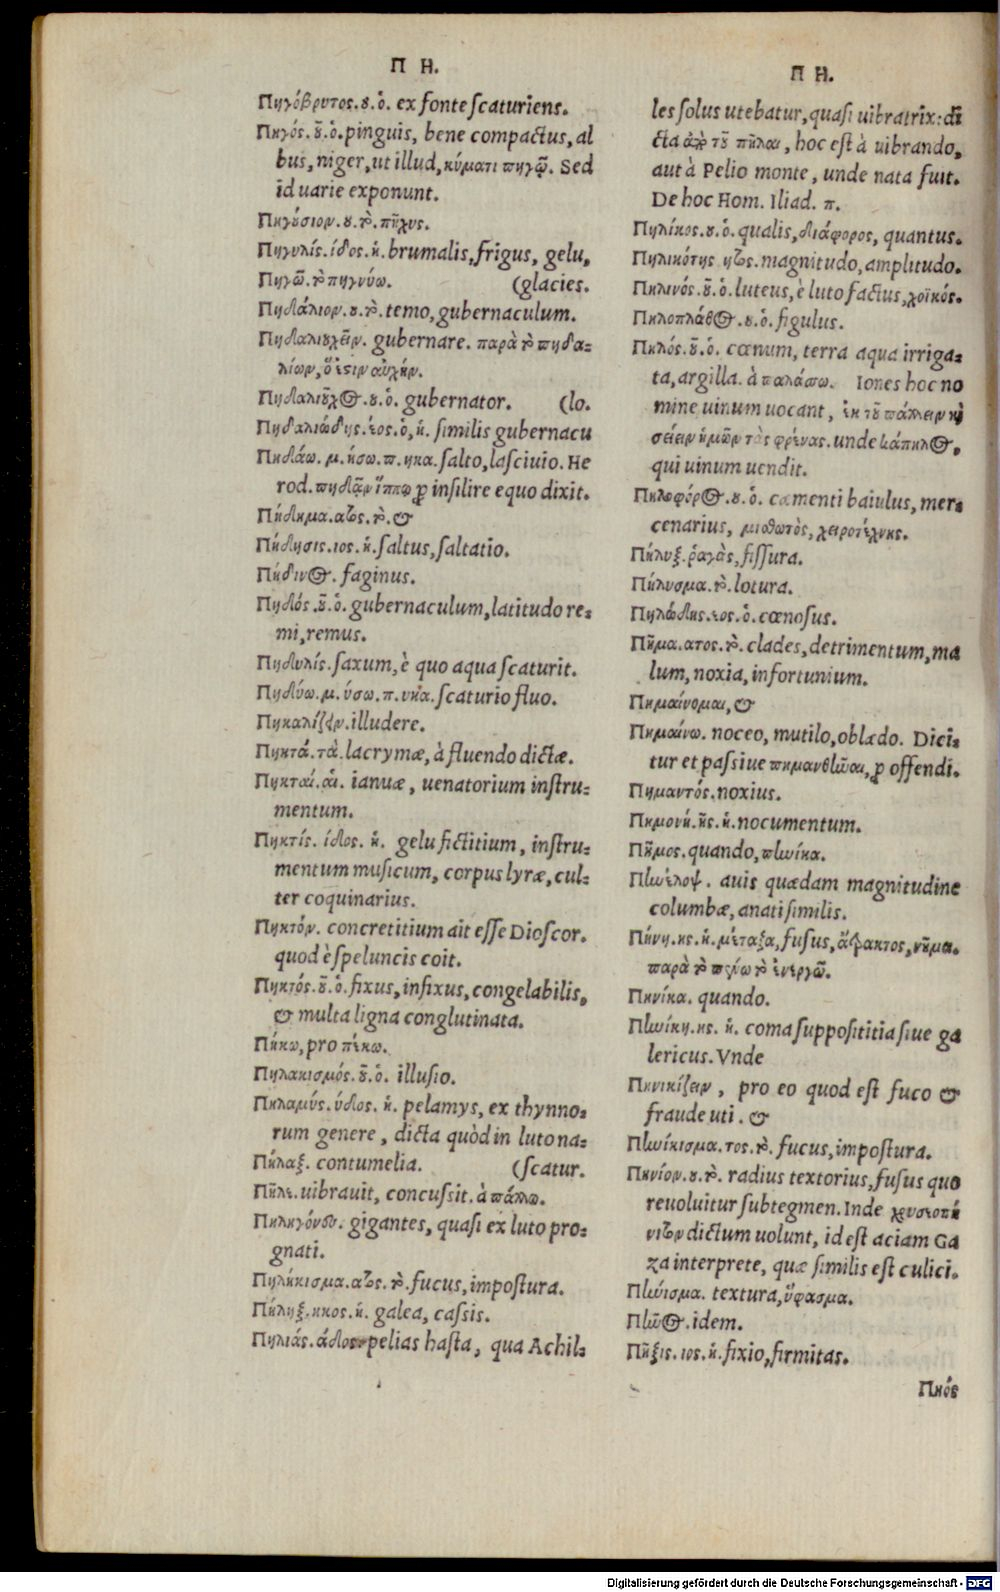 Π Η.
Πηγόβρυτος.ου.ὁ. ex fonte scaturiens.
Πηγός.οῦ.ὁ. pinguis, bene compactus, al
bus, niger, ut illud, κύματι πηγῷ. Sed
id uarie exponunt.
Πηγούσιον.ου.τὸ. πῆχυς.
Πηγυλίς.ίδος.ἡ. brumalis, frigus, gelu,
Πηγῶ.τὸ πηγνύω. (glacies.
Πηδάλιον.ου.τὸ. temo, gubernaculum.
Πηδαλιουχεῖν. gubernare. παρὰ τὸ πηδα-
λίων, ὅ ἐστιν αὐχήν.
Πηδαλιοῦχος.ου.ὁ. gubernator. (lo.
Πηδαλιώδης.εος.ὁ,ἡ. similis gubernacu
Πηδάω.μ.ήσω.π.ηκα. salto, lasciuio. He
rod. πηδᾶν ἵππῳ ꝓ insilire equo dixit.
Πήδημα.ατος.τὸ. &
Πήδησις.ιος.ἡ. saltus, saltatio.
Πήδινος. faginus.
Πηδός.οῦ.ὁ. gubernaculum, latitudo re-
mi, remus.
Πηδυλίς. saxum, è quo aqua scaturit.
Πηδύω.μ.ύσω.π.υκα. scaturio fluo.
Πηκαλίζειν. illudere.
Πηκτά.τὰ. lacrymæ, à fluendo dictæ.
Πηκταί.αἱ. ianuæ, uenatorium instru-
mentum.
Πηκτίς.ίδος.ἡ. gelu fictitium, instru-
mentum musicum, corpus lyræ, cul-
ter coquinarius.
Πηκτόν. concretitium ait esse Dioscor.
quod è speluncis coit.
Πηκτός.οῦ.ὁ. fixus, infixus, congelabilis,
& multa ligna conglutinata.
Πήκω, pro πέκω.
Πηλακισμός.οῦ.ὁ. illusio.
Πηλαμύς.ύδος.ἡ. pelamys, ex thynno-
rum genere, dicta quòd in luto na-
Πήλαξ. contumelia. (scatur.
Πῆλε. uibrauit, concussit. à πάλλω.
Πηληγόνες. gigantes, quasi ex luto pro-
gnati.
Πηλήκισμα.ατος.τὸ. fucus, impostura.
Πήληξ.ηκος.ἡ. galea, cassis.
Πηλιάς.άδος. pelias hasta, qua Achil-
Π Η.
les solus utebatur, quasi uibratrix: di
cta ἀπὸ τοῦ πῆλαι, hoc est à uibrando,
aut à Pelio monte, unde nata fuit.
De hoc Hom. Iliad. π.
Πηλίκος.ου.ὁ. qualis, διάφορος, quantus.
Πηλικότης ητος. magnitudo, amplitudo.
Πηλινός.οῦ.ὁ. luteus, è luto factus, χοϊκός.
Πηλοπλάθος.ου.ὁ. figulus.
Πηλός.οῦ.ὁ. cœnum, terra aqua irriga-
ta, argilla. à παλάσσω. Iones hoc no
mine uinum uocant, ἐκ τοῦ πάλλειν καὶ
σείειν ἡμῶν τὰς φρένας. unde κάπηλος,
qui uinum uendit.
Πηλοφόρος.ου.ὁ. cæmenti baiulus, mer-
cenarius, μισθωτὸς, χειροτέχνης.
Πήλυξ. ῥαγὰς, fissura.
Πήλυσμα.τὸ. lotura.
Πηλώδης.εος.ὁ. cœnosus.
Πῆμα.ατος.τὸ. clades, detrimentum, ma
lum, noxia, infortunium.
Πημαίνομαι, &
Πημαίνω. noceo, mutilo, oblædo. Dici-
tur et passiue πημανθῆναι, ꝓ offendi.
Πημαντός. noxius.
Πημονή.ῆς.ἡ. nocumentum.
Πῆμος. quando, πηνίκα.
Πηνέλοψ. auis quædam magnitudine
columbæ, anati similis.
Πήνη.ης.ἡ. μέταξα, fusus, ἄτρακτος, νῦμα.
παρὰ τὸ πένω τὸ ἐνεργῶ.
Πηνίκα. quando.
Πηνίκη.ης.ἡ. coma supposititia siue ga
lericus. Vnde
Πηνικίζειν, pro eo quod est fuco &
fraude uti. &
Πηνίκισμα.τος.τὸ. fucus, impostura.
Πηνίον.ου.τὸ. radius textorius, fusus quo
reuoluitur subtegmen. Inde χρυσεοπή
νιτον dictum uolunt, id est aciam Ga
za interprete, quæ similis est culici.
Πηνύισμα. textura, ὕφασμα.
Πῆνος. idem.
Πῆξις.ιος.ἡ. fixio, firmitas.
Πηός
Digitalisierung gefördert durch die Deutsche Forschungsgemeinschaft - DFG